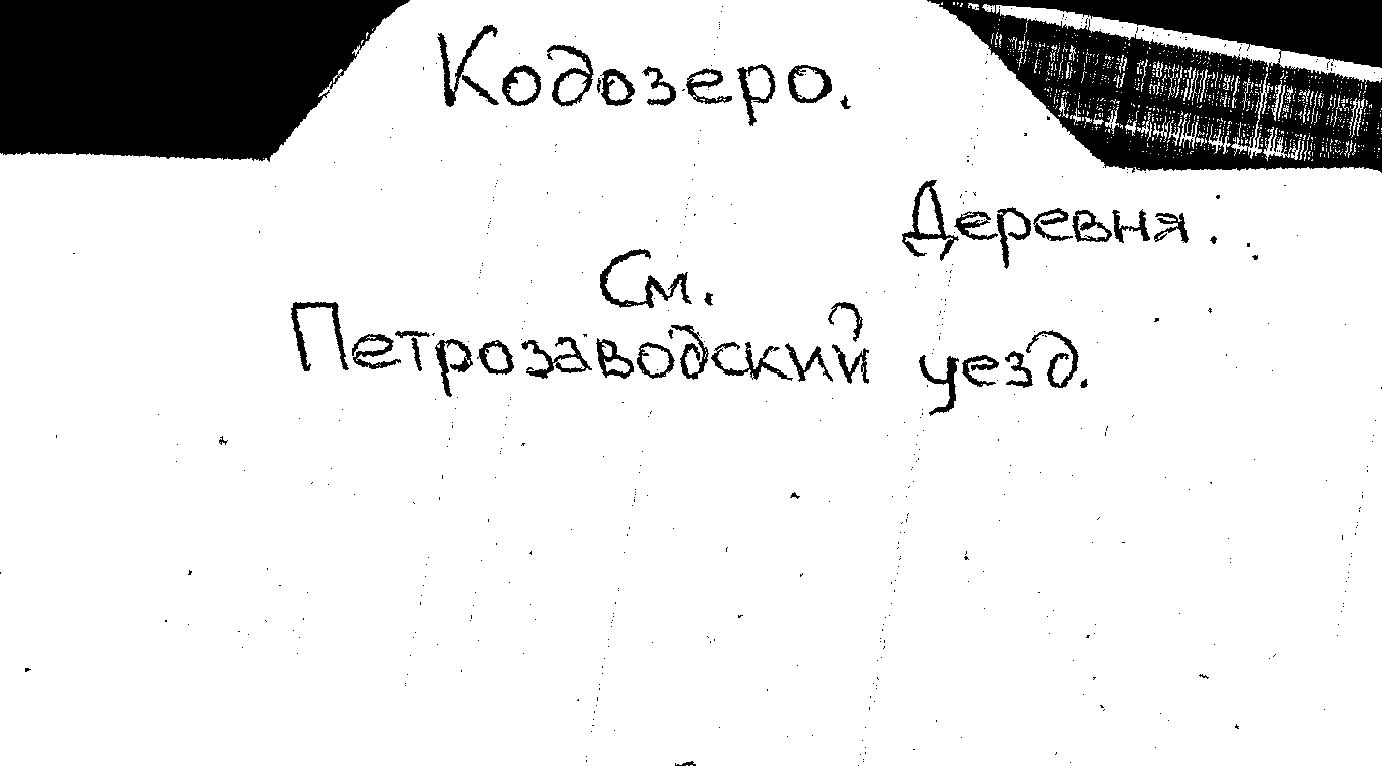 Кодозеро.
Деревня.
См.
Петрозаводский уезд.